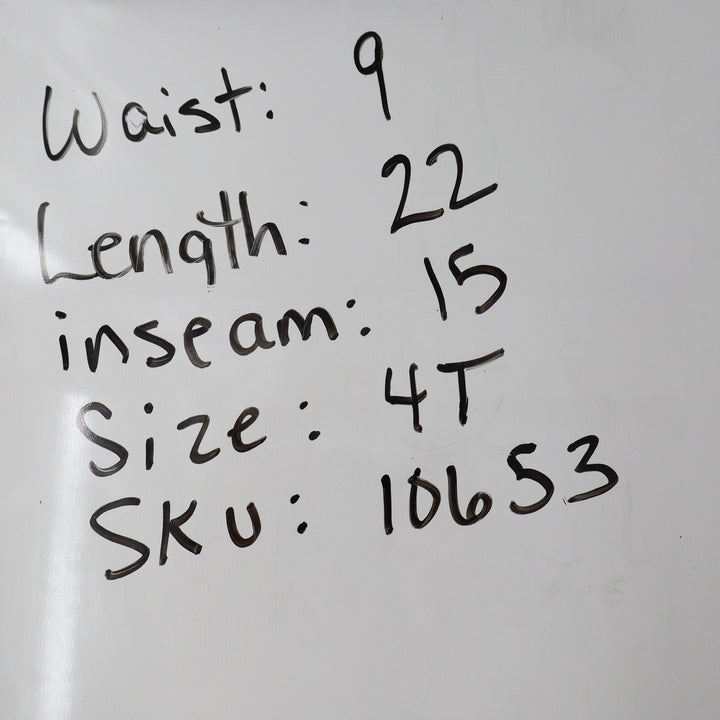 Waist: 9
Length: 22
inseam: 15
Size: 4T
SKU: 10653